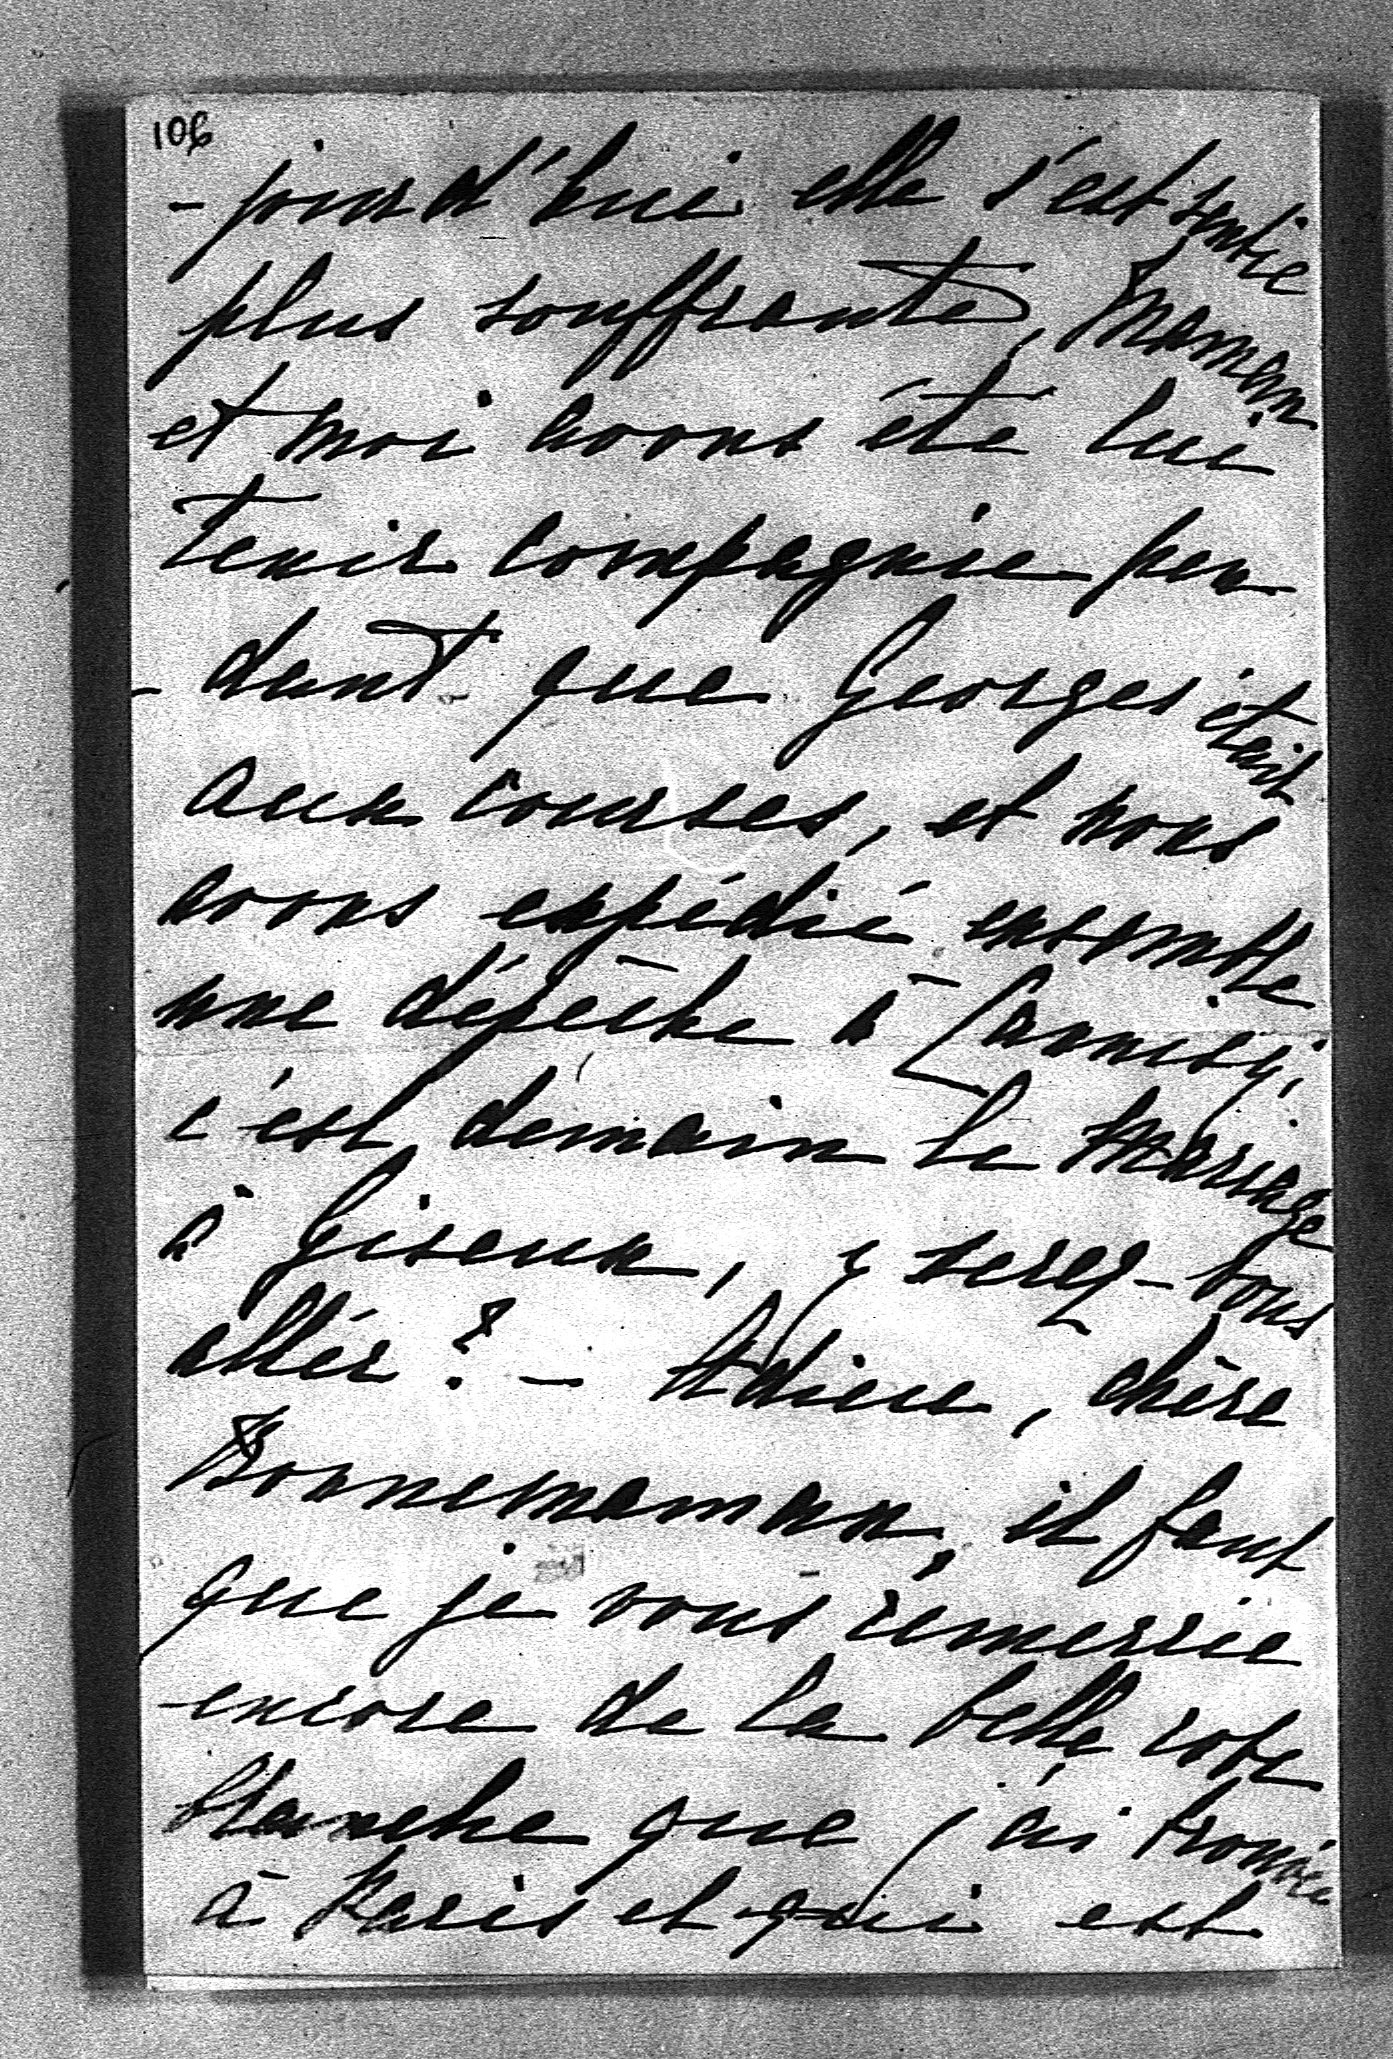 106
-jourd'hui elle s'est sentie
plus souffrante, Maman
et moi avons été lui
tenir compagnie pen
-dant que Georges était
aux courses, et nous
avons expédié ensemble
une dépêche à Cannisy;
c'est demain le mariage
à Gizeux, y serez-vous
allée? - Adieu, chère
Bonnemaman, il faut
que je vous remercie
encore de la belle robe
blanche que j'ai trouvée
à Paris et qui est